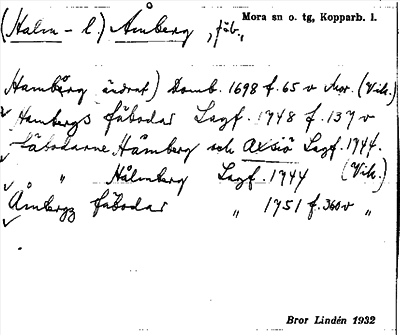 (Halm-l.) Åmberg, fäb., Mora sn o. tg, Kopparb. l.
Hamberg ändrat) Domb. 1698 f. 65 v Mor. (Vik.)
Hambergs fäbodar Lagf. 1748 f. 137 v
Fäbodarne Hamberg och Axsiö Lagf. 1744.
" Hålmberg Lagf. 1744 (Vik.)
Åmbergz fäbodar " 1751 f. 360 v "
Bror Lindén 1932